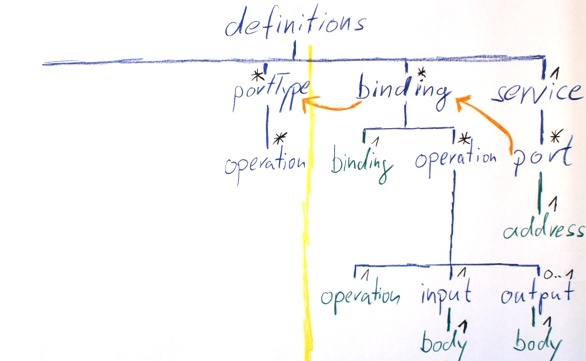 definitions
* * 1
portType binding service
* 1 * *
operation binding operation port
1
address
1 1 0..1
operation input output
1 1
body body